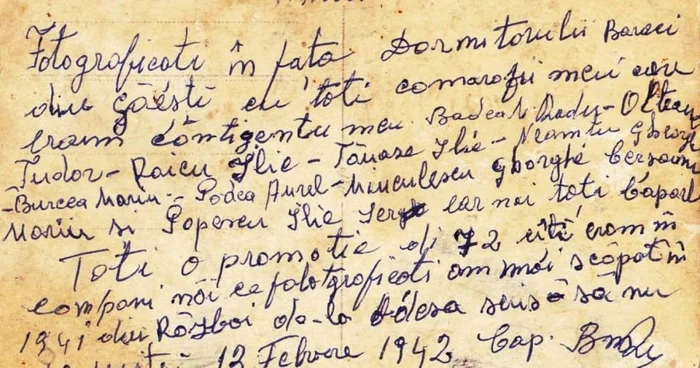 Fotograficati în fata Dormitorului Baraci
din Găesti cu toti camarazii mei care
eram contigentu meu. Badea Radu - Oltean
Tudor - Raicu Ilie - Tănase Ilie - Neamtu Gheorghe
- Burcea Marin - Podea Aurel - Minculescu Ghorghe
Marin si Popescu Ilie Serg iar noi toti Caporali
Toti o promotie di 72 cîti eram în
compani noi ce fototgraficati am mai scăpat în
1941 din Război de-la Odesa să nu
12 Febrore 1942 Cap.